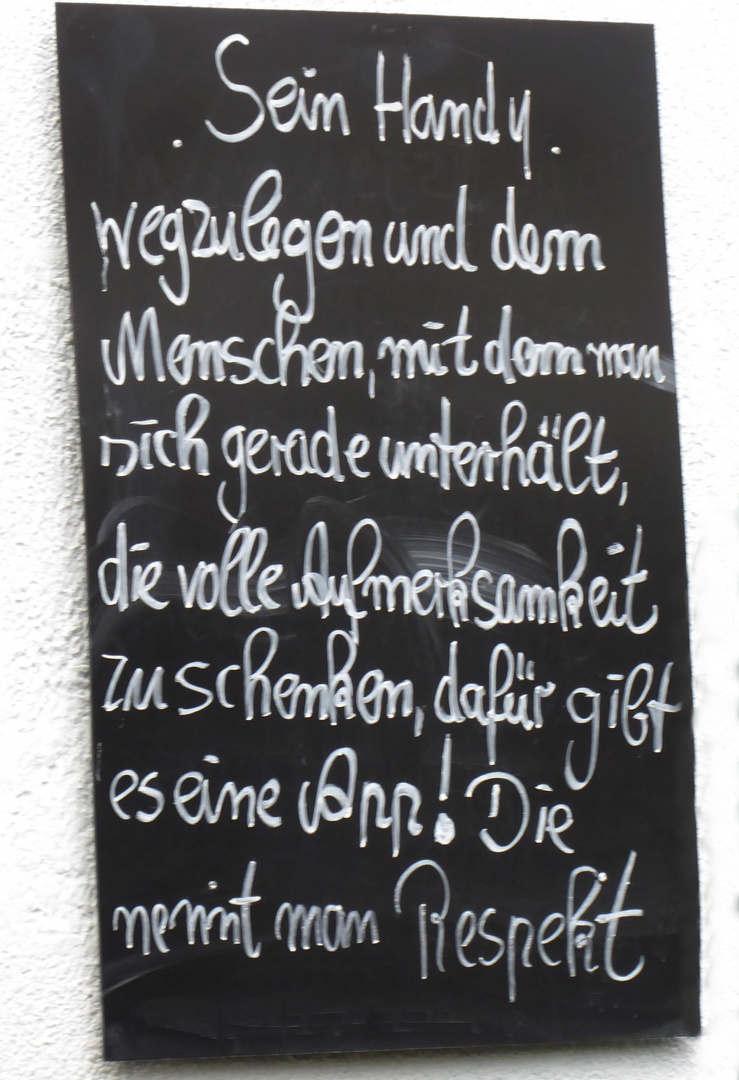 . Sein Handy .
wegzulegen und dem
Menschen, mit dem man
sich gerade unterhält,
die volle Aufmerksamkeit
zu schenken, dafür gibt
es eine App! Die
nennt man Respekt